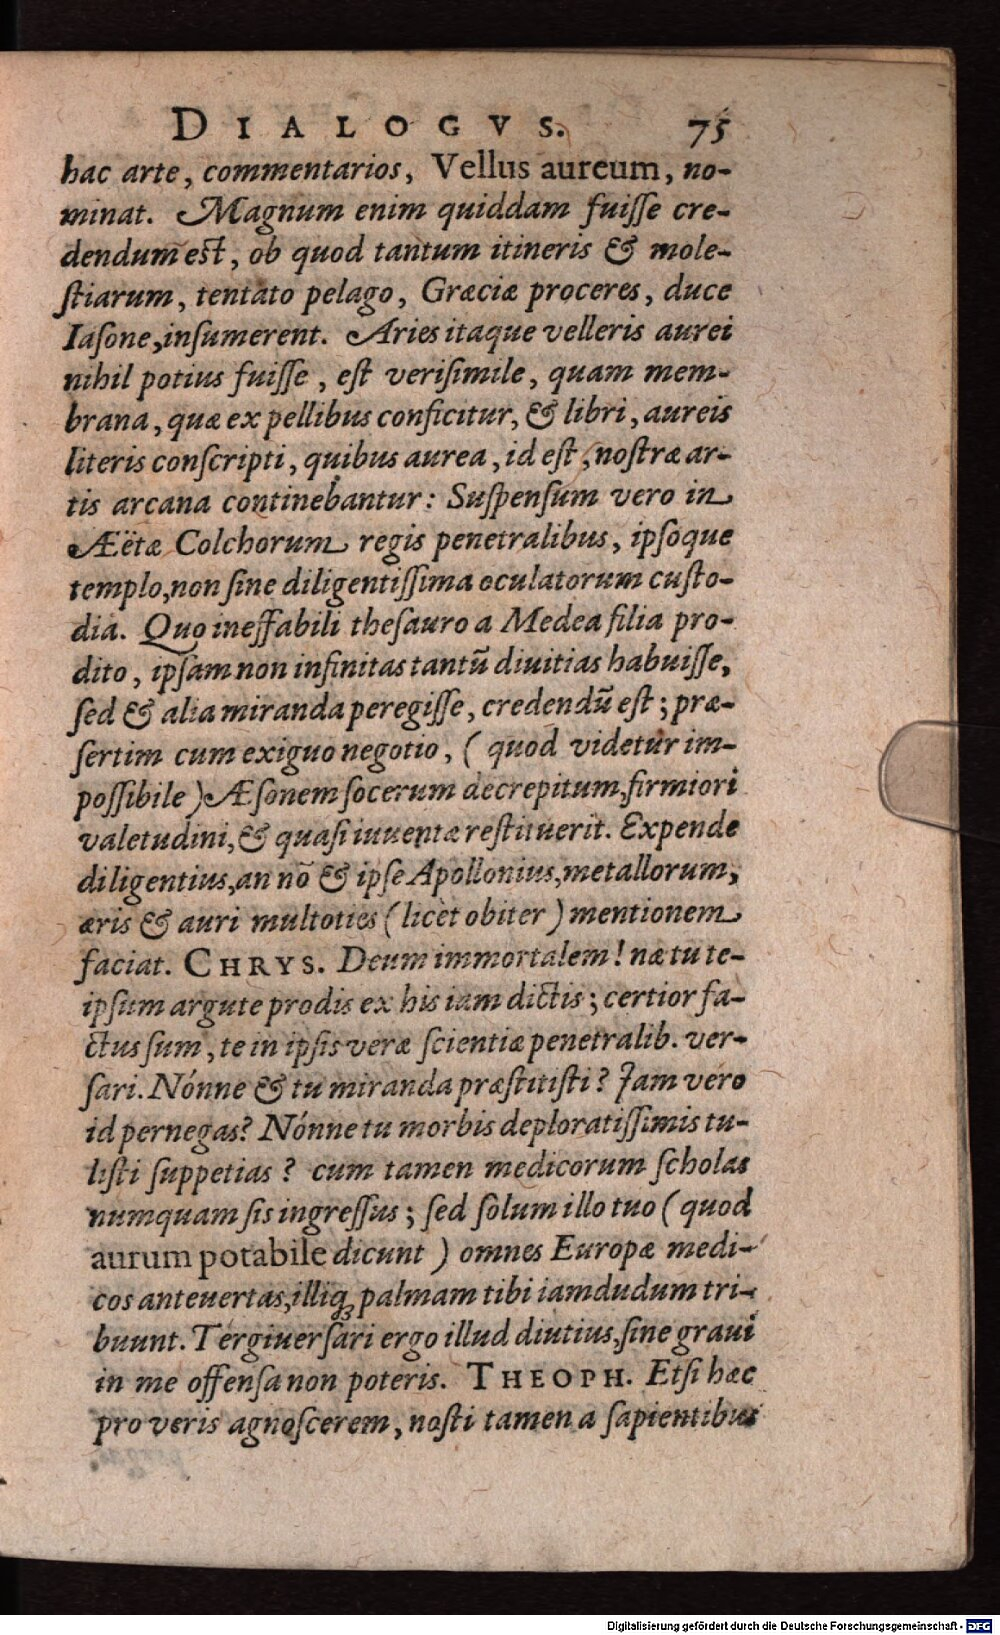 DIALOGVS. 75
hac arte, commentarios, Vellus aureum, no-
minat. Magnum enim quiddam fuisse cre-
dendum est, ob quod tantum itineris & mole-
stiarum, tentato pelago, Græciæ proceres, duce
Iasone, insumerent. Aries itaque velleris aurei
nihil potius fuisse, est verisimile, quam mem-
brana, quæ ex pellibus conficitur, & libri, aureis
literis conscripti, quibus aurea, id est, nostræ ar-
tis arcana continebantur: Suspensum vero in
Æëtæ Colchorum regis penetralibus, ipsoque
templo, non sine diligentissima oculatorum custo-
dia. Quo ineffabili thesauro a Medea filia pro-
dito, ipsam non infinitas tantũ diuitias habuisse,
sed & alia miranda peregisse, credendũ est; præ-
sertim cum exiguo negotio, (quod videtur im-
possibile) Æsonem socerum decrepitum, firmiori
valetudini, & quasi iuuentæ restituerit. Expende
diligentius, an nõ & ipse Apollonius, metallorum,
æris & auri multoties (licèt obiter) mentionem
faciat. CHRYS. Deum immortalem! næ tu te-
ipsum argute prodis ex his iam dictis; certior fa-
ctus sum, te in ipsis veræ scientiæ penetralib. ver-
sari. Nónne & tu miranda præstitisti? Jam vero
id pernegas? Nónne tu morbis deploratissimis tu-
listi suppetias? cum tamen medicorum scholas
numquam sis ingressus; sed solum illo tuo (quod
aurum potabile dicunt) omnes Europæ medi-
cos anteuertas, illiq; palmam tibi iamdudum tri-
buunt. Tergiuersari ergo illud diutius, sine graui
in me offensa non poteris. THEOPH. Etsi hæc
pro veris agnoscerem, nosti tamen a sapientibus
Digitalisierung gefördert durch die Deutsche Forschungsgemeinschaft - DFG